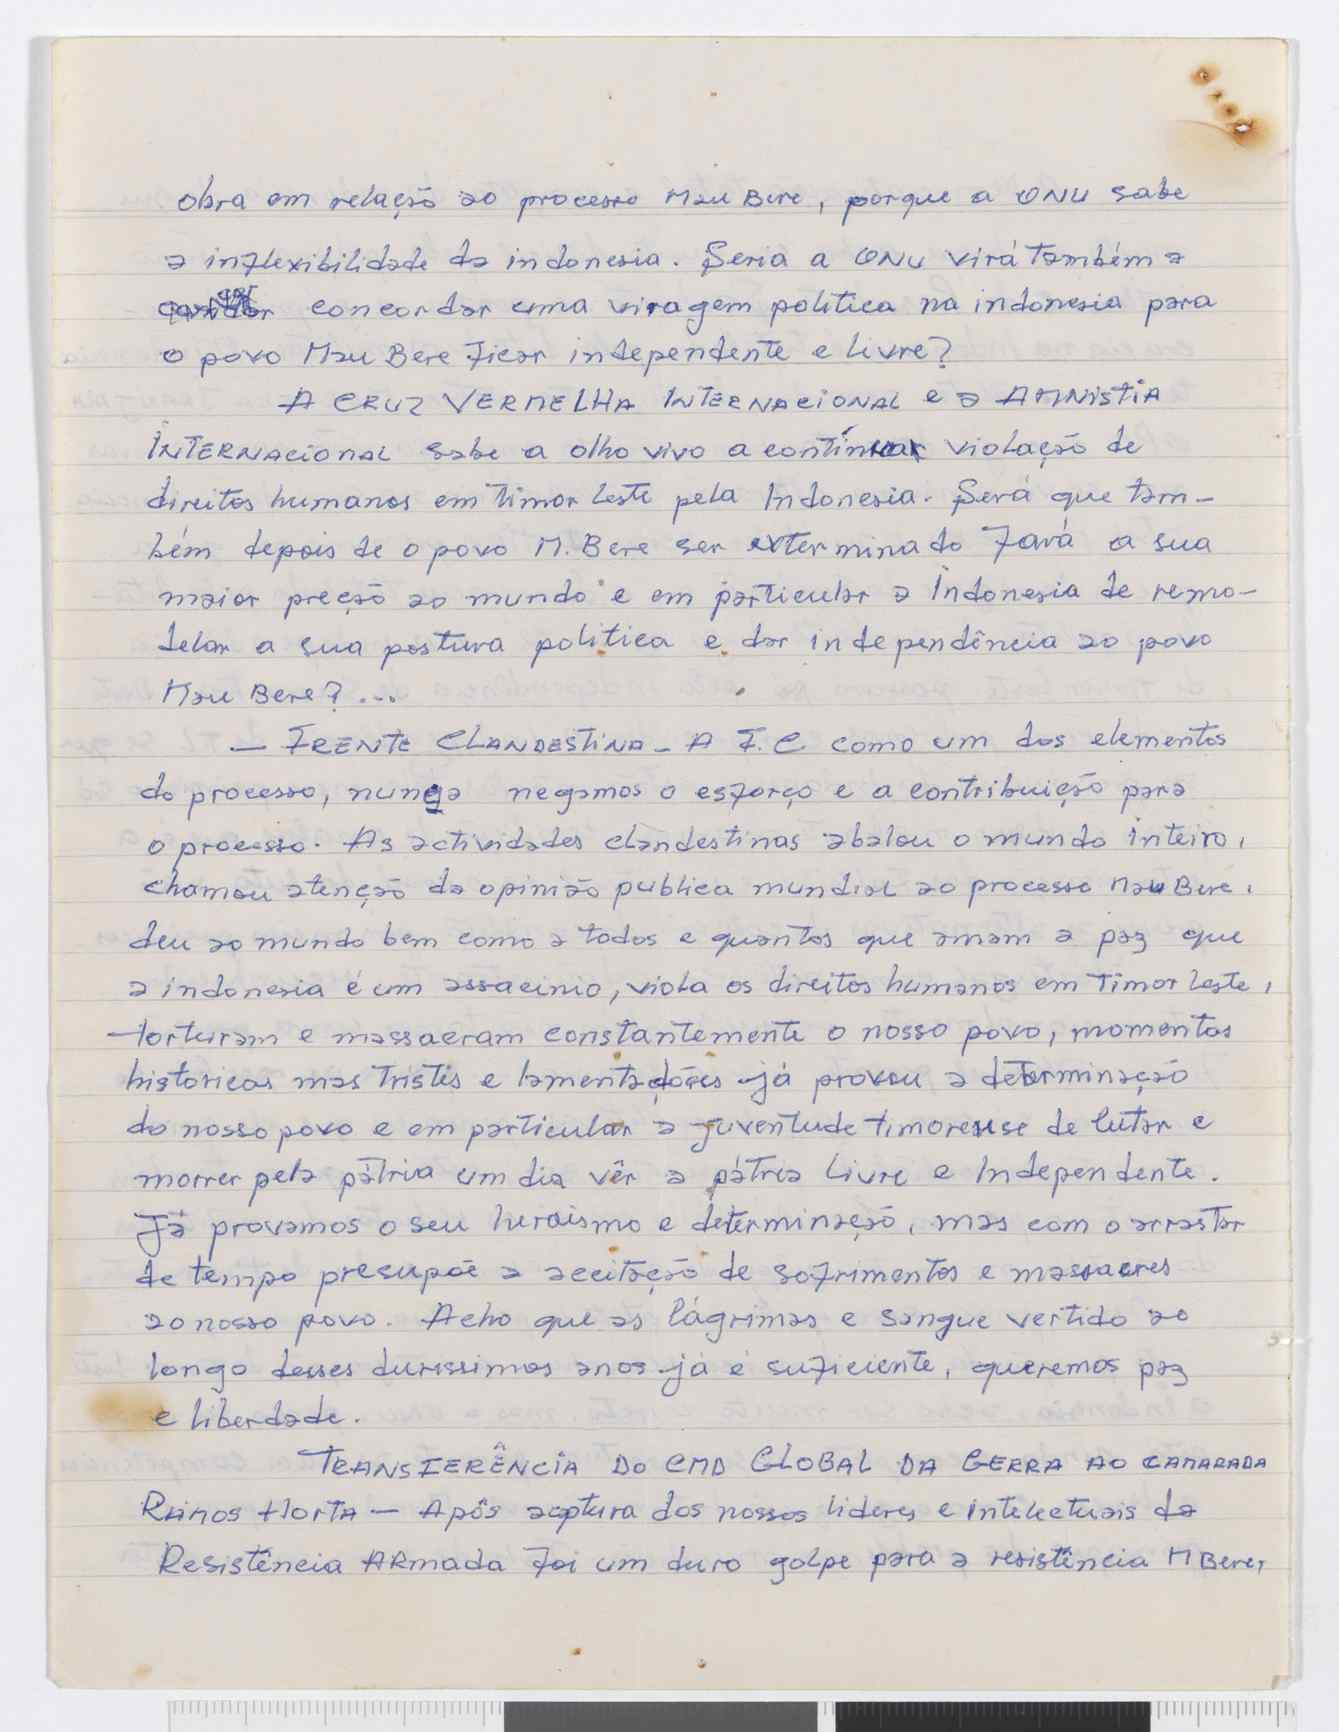 obra em relação ao processo Mau Bere, porque a ONU sabe
a inflexibilidade da indonesia. Seria a ONU virá também a
concordar uma viragem politica na indonesia para
o povo Mau Bere ficar independente e livre?
A CRUZ VERMELHA INTERNACIONAL e a AMNISTIA
INTERNACIONAL sabe a olho vivo a continuar violação de
direitos humanos em Timor Leste pela Indonesia. Será que tam-
bém depois de o povo M. Bere ser exterminado fará a sua
maior preção ao mundo e em particular a Indonesia de remo-
delar a sua postura politica e dar independência ao povo
Mau Bere? ...
— FRENTE CLANDESTINA - A F. C como um dos elementos
do processo, nunca negamos o esforço e a contribuição para
o processo. As actividades clandestinas abalou o mundo inteiro,
chamou atenção da opinião publica mundial ao processo Mau Bere,
deu ao mundo bem como a todos e quantos que amam a paz que
a indonesia é um assacinio, viola os direitos humanos em Timor Leste,
torturam e massacram constantemente o nosso povo, momentos
historicos mas tristes e lamentações já provou a determinação
do nosso povo e em particular a juventude timorense de lutar e
morrer pela pátria um dia vêr a pátria Livre e Independente.
Já provamos o seu heroismo e determinação, mas com o arrastar
de tempo presupõe a aceitação de sofrimentos e massacres
ao nosso povo. Acho que as lágrimas e sangue vertido ao
longo desses durissimos anos já é suficiente, queremos paz
e liberdade.
TRANSFERÊNCIA DO CMD GLOBAL DA GERRA AO CAMARADA
RAMOS HORTA — Após a captura dos nossos lideres e intelectuais da
Resistência ARmada foi um duro golpe para a resistência M Bere,